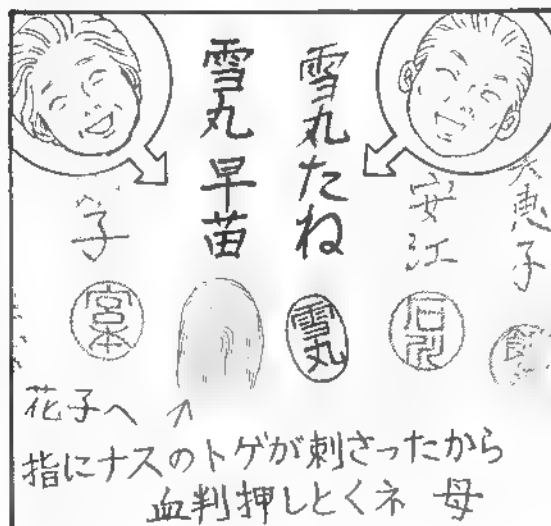 恵子
安江
雪丸たね
雪丸早苗
子
雪丸
宮本
花子へ
指にナスのトゲが刺さったから
血判押しとくネ 母